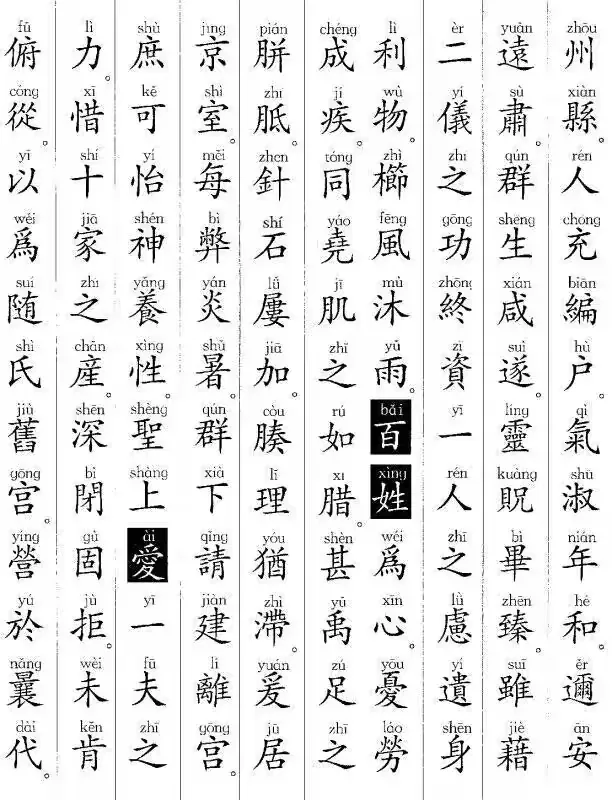 州縣。人充編户。氣淑年和邇安
zhōu xiàn rén chōng biān hù qì shū nián hé ěr ān
遠肅。群生咸遂。靈貺畢臻。雖藉
yuǎn sù qún shēng xián suì líng kuàng bì zhēn suī jiè
二儀之功終資一人之慮遺身
èr yí zhī gōng zhōng zī yī rén zhī lǜ yí shēn
利物。櫛風沐雨。百姓爲心憂勞
lì wù zhì fēng mù yǔ bǎi xìng wéi xīn yōu láo
成疾。同堯肌之如腊。甚禹足之
chéng jí tóng yáo jī zhī rú xī shèn yǔ zú zhī
胼胝。針石屢加。腠理猶滯。爰居
pián zhī zhēn shí lǚ jiā còu lǐ yóu zhì yuán jū
京室。每弊炎暑。群下請建離宮。
jīng shì měi bì yán shǔ qún xià qǐng jiàn lí gōng
庶可怡神養性。聖上愛一夫之
shù kě yí shén yǎng xìng shèng shàng ài yī fū zhī
力。惜十家之産。深閉固拒未肯
lì xī shí jiā zhī chǎn shēn bì gù jù wèi kěn
俯從。以爲随氏舊宮。營於曩代。
fǔ cóng yǐ wéi suí shì jiù gōng yíng yú nǎng dài